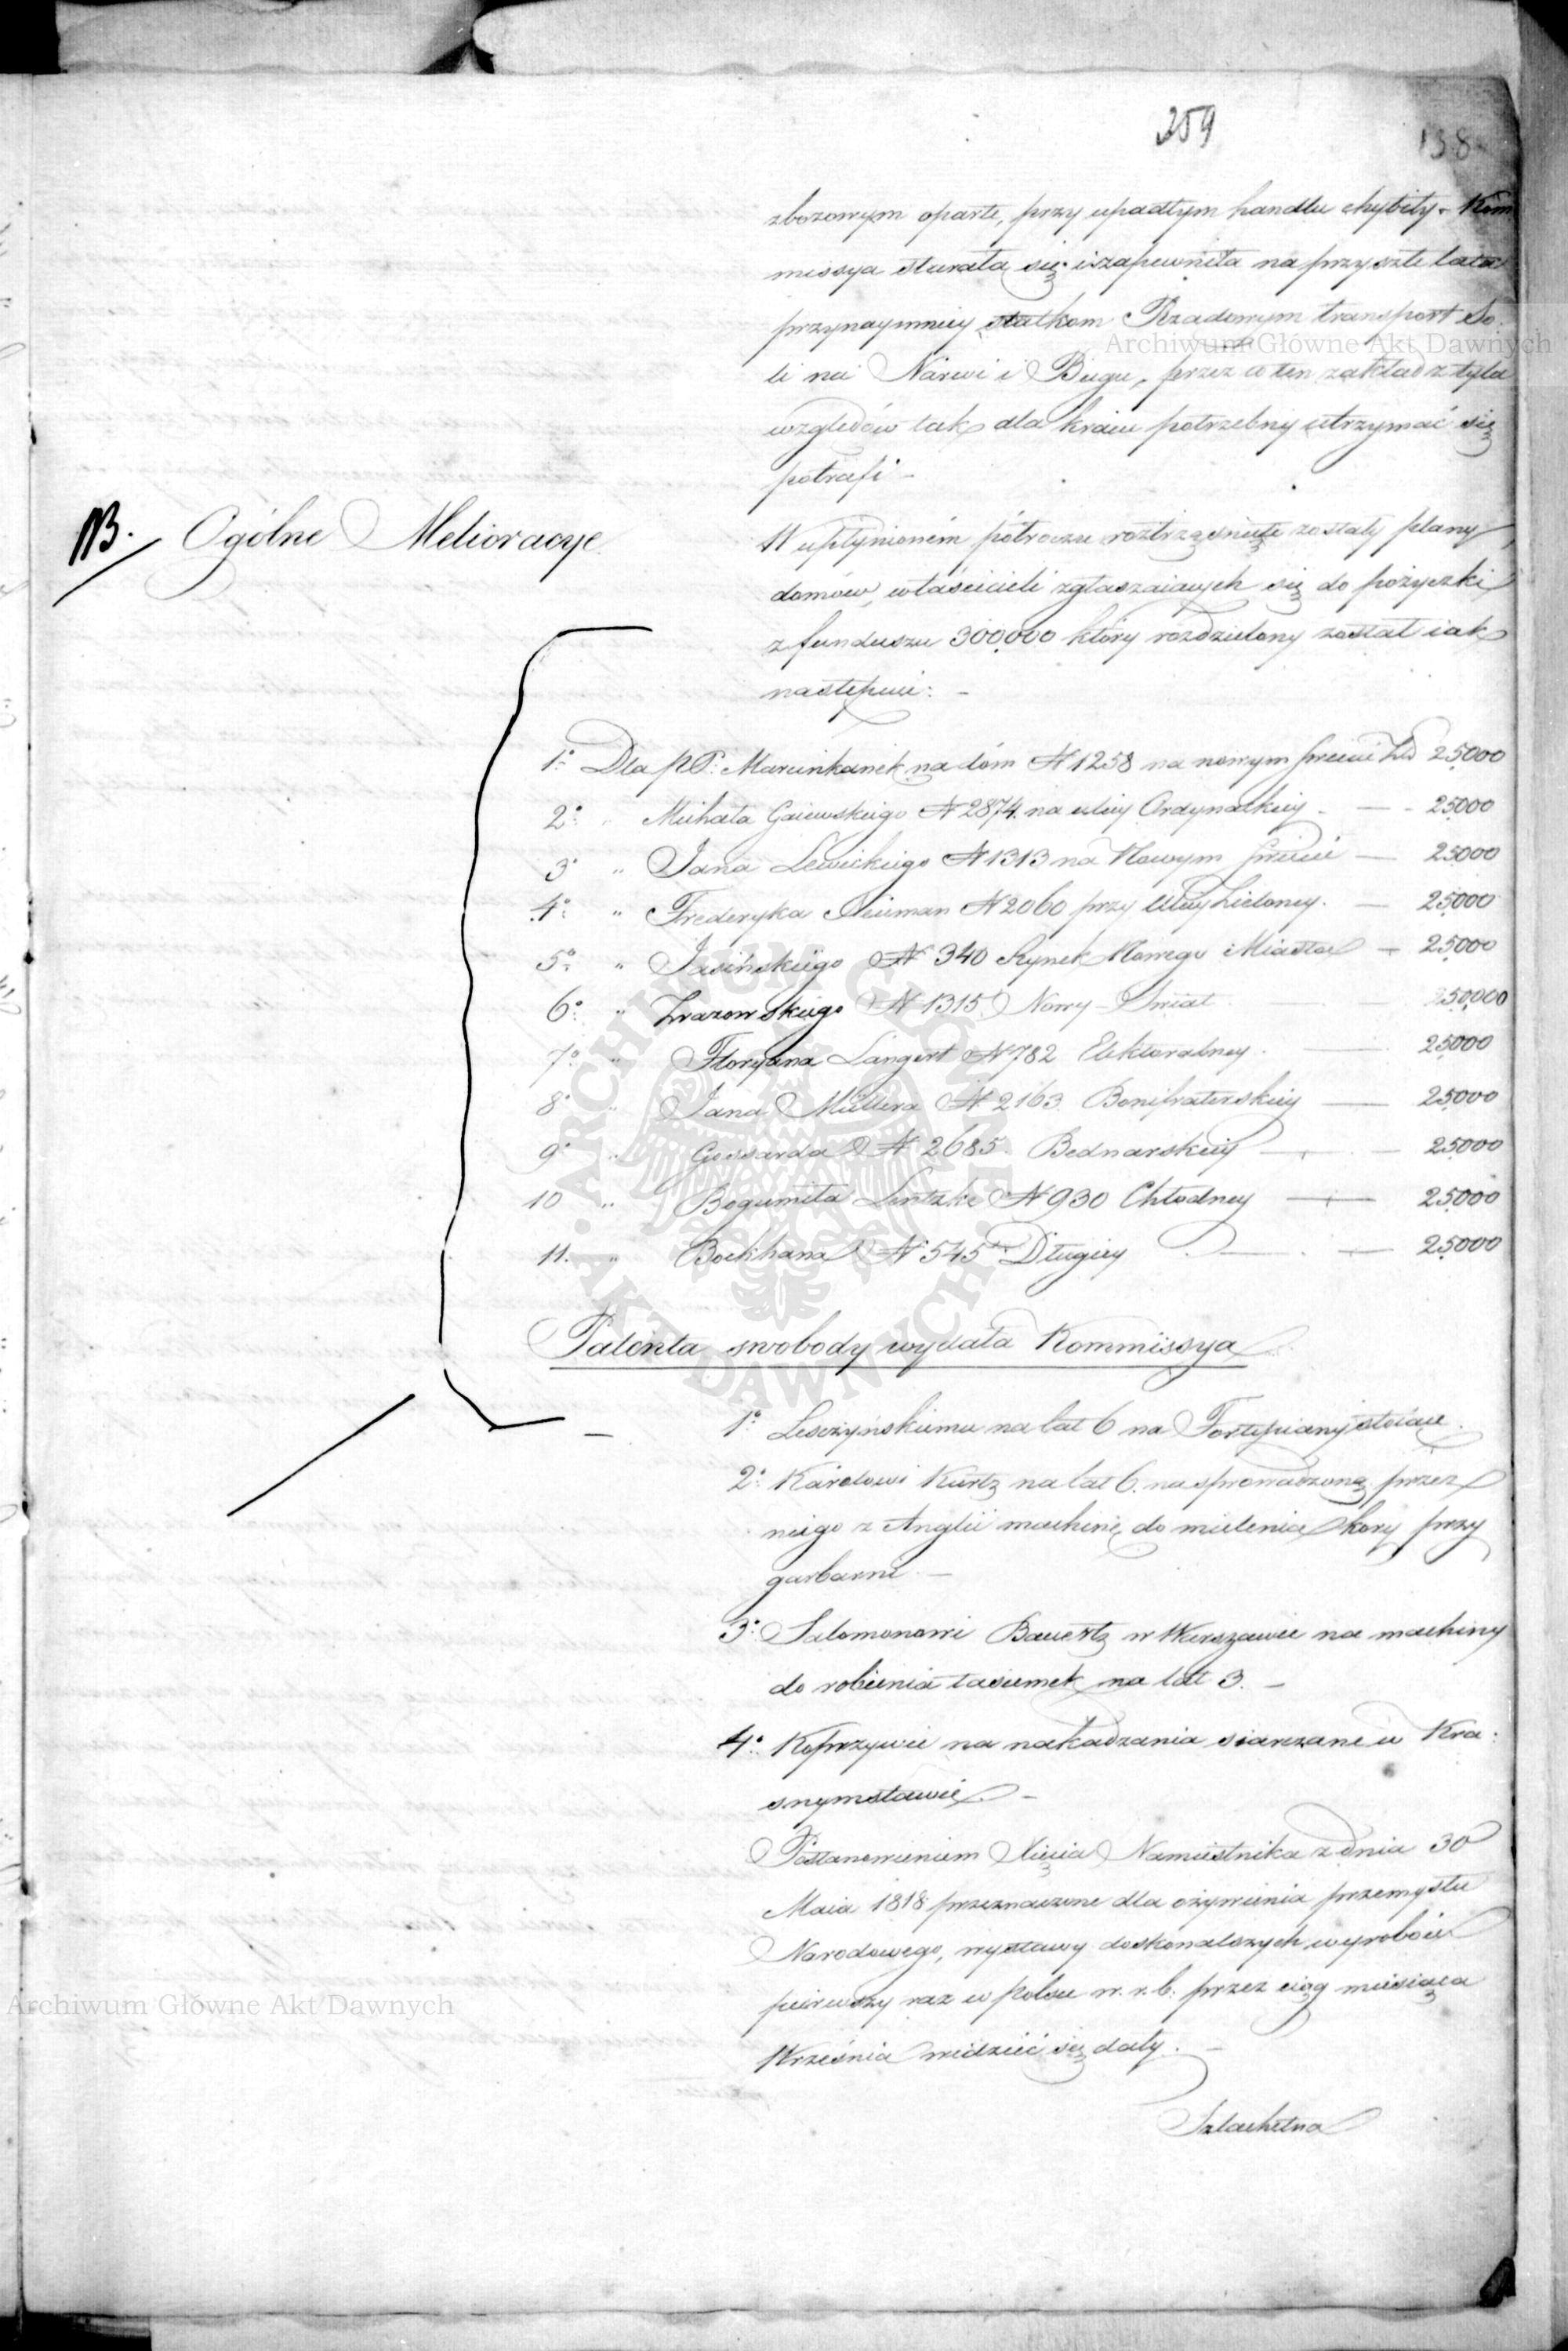 259
138
zbozowym oparte, przy upadłym handlu chybiły. Kom
missya starała się i zapewniła na przyszłe lata
przynaymniey statkom Rządowym transport So:
li na Narwi i Bugu, przez co ten zakład z tylu
względów tak dla kraiu potrzebny utrzymać się
potrafi -
NB. Ogólne Melioracye.
W upłynioném półroczu roztrząśnięte zostały plany
domów, właścicieli zgłaszaiących się do pożyczki
z funduszu 300,000 który rozdzielony został iak
następuie: -
1º Dla PP: Marcinkanek na dóm N 1258 na nowym świecie Zł 25000
2º " Michała Gaiewskiego N 2874. na ulicy Ordynackiey - 25000
3º " Jana Lewickiego N 1313 na Nowym świecie - 25000
4º " Frederyka Neuman N 2060 przy Ulicy Zieloney. - 25000
5º " Jasińskiego N 340 Rynek Nowego Miasta - 25000
6º " Zrazowskiego N 1315. Nowy-Świat 50,000
7º " Floryana Langert N 782 Elektoralney. - 25000
8º " Jana Müllera N 2163 Bonifraterskiey - 25000
9º " Gossarda N 2685. Bednarskiey - 25000
10 " Bogumiła Lentzke N 930 Chłodney - 25000
11. " Bockhana N 545 Długiey - 25000
Patenta swobody wydała Kommissya
1º Leszczyńskiemu na lat 6 na Fortepiany stoiące.
2º Karolowi Kurtz na lat 6. na sprowadzoną przez
niego z Anglii machinę do mielenia kory przy
garbarni. -
3º Salomonowi Bauertz w Warszawie na machiny
do robienia tasiemek na lat 3. -
4º Koprzywie na nakadzania siarczane w Kra:
snymstawie. -
Postanowieniem Xięcia Namiestnika z dnia 30
Maia 1818 przeznaczone dla ożywienia przemysłu
Narodowego, wystawy doskonalszych wyrobów
pierwszy raz w Polsce w. r. b. przez ciąg miesiąca
Września widzieć się dały. -
Szlachetna
Archiwum Główne Akt Dawnych
Archiwum Główne Akt Dawnych
ARCHIWUM GŁÓWNE AKT DAWNYCH